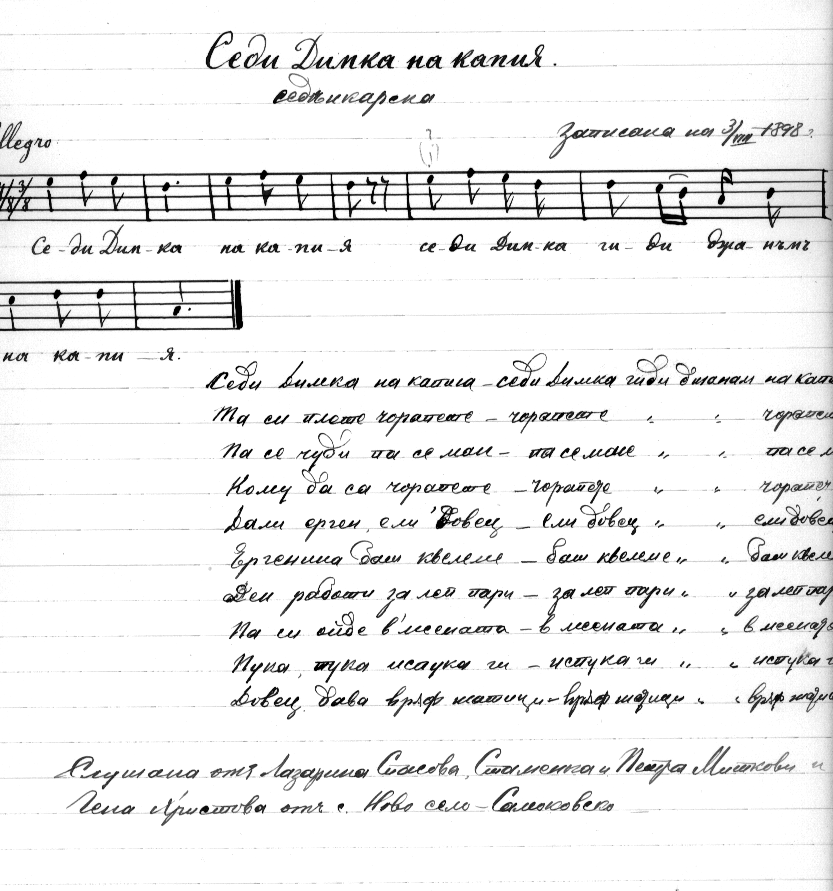 Седи Димка на капия.
седѣнкарска
Allegro
Записана на 3/VIII 1898 г.
3/8
Се-ди Дим-ка на ка-пи-я се-ди Дим-ка ги-ди джа-нъмъ
на ка-пи-я.
Седи Димка на капиа – седи Димка гиди джанам на капи
Та си плете чорапете – чорапете „ „ чорапе
Па се чуди па се маи – па се маие „ „ па се м
Кому да са чорапете – чорапете „ „ чорапе
Дали ерген, ели довец – ели довец „ „ ели довец
Ергенина баш квелеме – баш квелеме „ „ баш квеле
Ден работи за леп пари – за леп пари „ „ за леп пар
Па си ойде в'меаната – в меаната „ „ в меаната
Пука, тука исаука ги – испука ги „ „ испука г
Довец, дава врѫф жатици – врѫф жатици „ „ врѫф
Слушана отъ Лазарина Стасова, Стаменка и Петра Миткови и
Гена Христова отъ с. Ново село – Самоковско